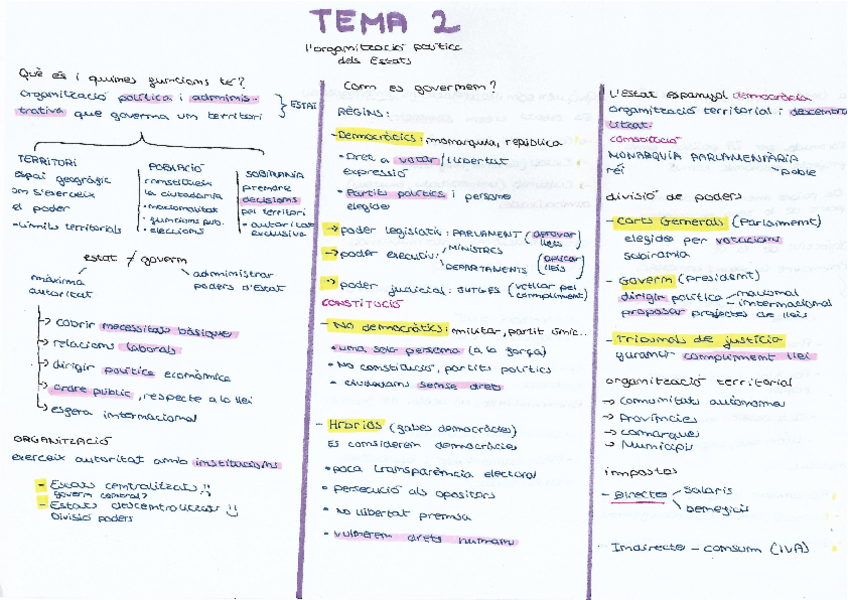 TEMA 2
l'organització política
dels Estats
Què és i quines funcions té?
organització política i adminis-
trativa que governa un territori
ESTAT
TERRITORI
espai geogràfic
on s'exerceix
el poder
límits territorials
POBLACIÓ
constitueix
la ciutadania
nacionalitat
funcions púb.
eleccions
SOBIRANIA
prendre
decisions
pel territori
autoritat
exclusiva
estat ≠ govern
màxima
autoritat
administrar
poders d'Estat
→ cobrir necessitats bàsiques
→ relacions laborals
→ dirigir política econòmica
→ ordre públic, respecte a la llei
→ esfera internacional
ORGANITZACIÓ
exerceix autoritat amb institucions
- Estats centralitzats
govern central?
- Estats descentralitzats
Divisió poders
Com es governen?
RÈGINS:
- Democràtics: monarquia, república
• Dret a votar/llibertat
expressió
• Partits polítics i persona
elegida
→ poder legislatiu: PARLAMENT (aprovar
lleis)
→ poder executiu: MINISTRES
DEPARTAMENTS
(aplicar
lleis)
→ poder judicial: JUTGES (vetllar pel
compliment)
CONSTITUCIÓ
- No democràtics: militar, partit únic...
• una sola persona (a la força)
• No constitució, partits polítics
• ciutadans sense drets
- Híbrids (falses democràcies)
Es consideren democràcies
• poca transparència electoral
• persecució als opositors
• No llibertat premsa
• vulneren drets humans
L'estat espanyol democràcia
organització territorial i descentra
litzat.
constitució
MONARQUIA PARLAMENTÀRIA
rei
poble
divisió de poders
- Corts Generals (Parlament)
elegides per votacions
sobirania
- Govern (president)
dirigir política - nacional
- internacional
proposar projectes de llei
- Tribunals de justícia
garantir compliment llei
organització territorial
→ comunitats autònomes
→ Províncies
→ comarques
→ Municipis
impostos
- Directe
salaris
beneficis
Indirecte - consum (IVA)